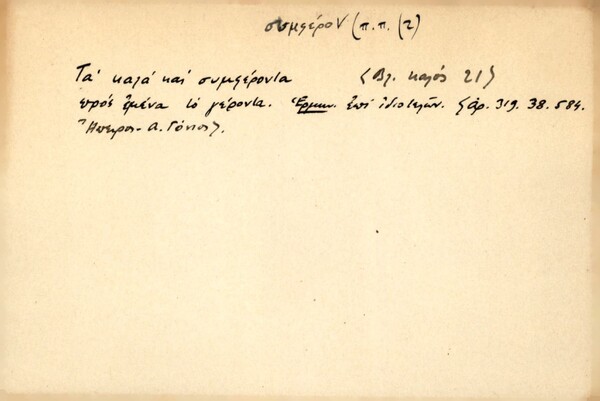 συμφέρον (π.π. (2)
Τα' καλά καί συμφέροντα <Βλ. καλός 21>
πρός ἐμένα τό γέροντα. Ἑρμην. ἐπί ἰδιοτελῶν. <Αρ. 319. 38. 584.
Ἤπειρος - Α. Γόνιος>.